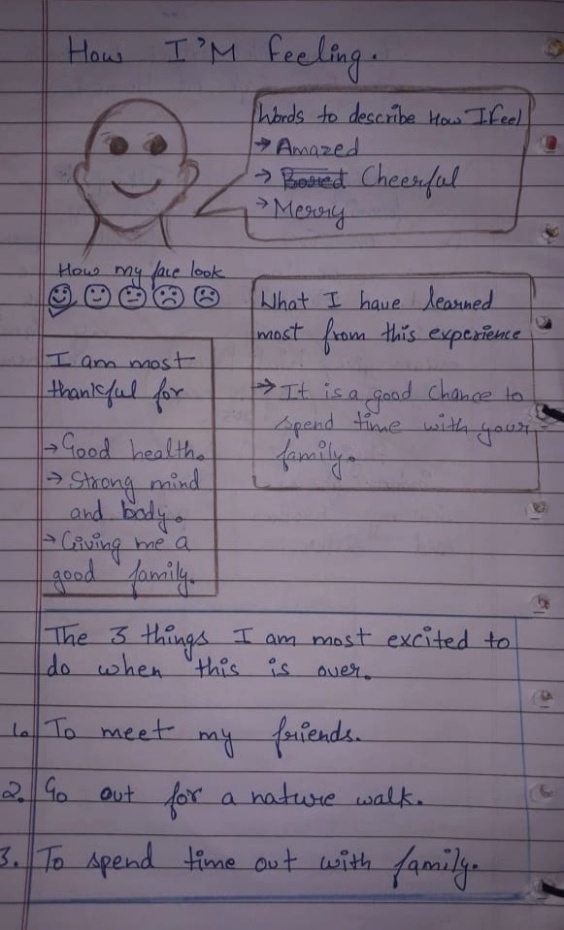 How I'M feeling.
Words to describe How I feel
→ Amazed
→ Bored Cheerful
→ Merry
How my face look
What I have learned
most from this experience
→ It is a good chance to
spend time with your
family.
I am most
thankful for
→ Good health.
→ Strong mind
and body.
→ Giving me a
good family.
The 3 things I am most excited to
do when this is over.
1. To meet my friends.
2. Go out for a nature walk.
3. To spend time out with family.